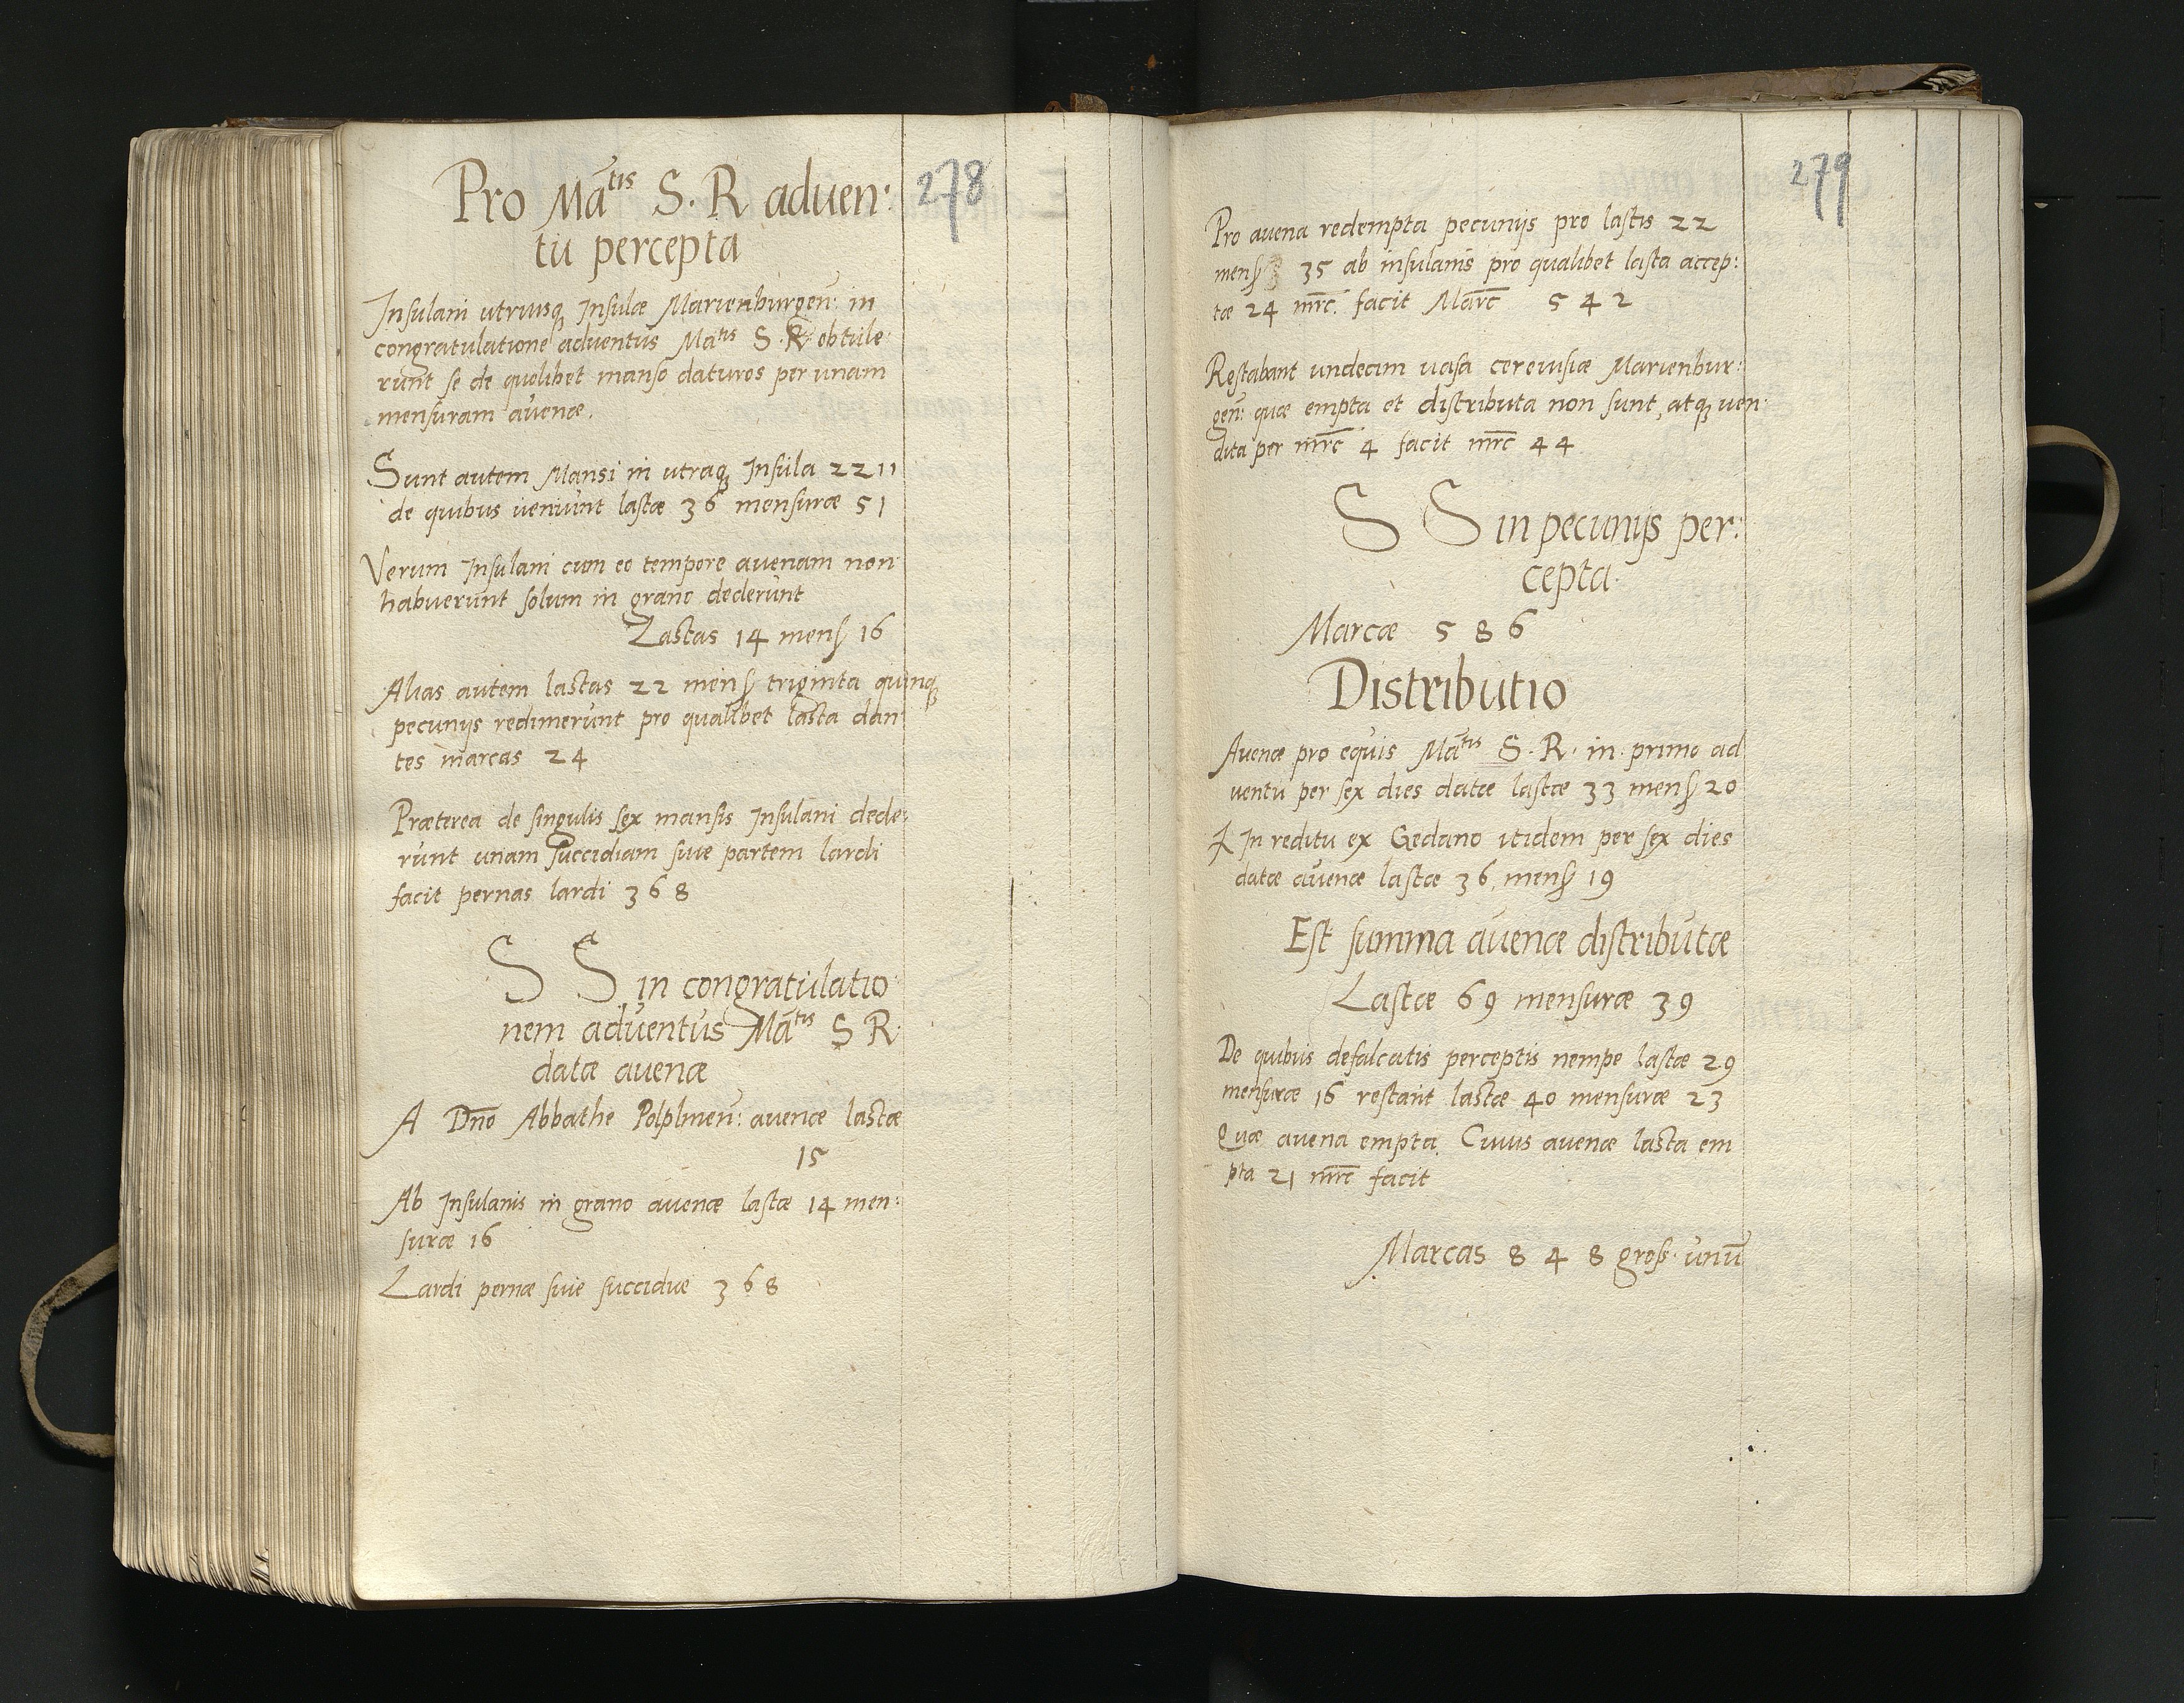 278
Pro Ma^tis S. R aduen:
tu percepta
Insulani utriusq; Insulæ Marienburgen: in
congratulatione aduentus Ma^tis S. R. obtule
runt se de quolibet manso daturos per unam
mensuram auenæ.
Sunt autem Mansi in utraq; Insula 2211
de quibus ueniunt lastæ 36 mensuræ 51
Verum Insulani cum eo tempore auenam non
habuerunt solum in grano dederunt
Lastas 14 mens 16
Alias autem lastas 22 mens triginta quinq;
pecunijs redimerunt pro qualibet lasta dan
tes marcas 24
Præterea de singulis sex mansis Insulani dede:
runt unam succidiam siue partem lardi
facit pernas lardi 368
S S in congratulatio
nem aduentus Ma^tis S R
datæ auenæ
A Dno Abbathe Polplinen: auenæ lastæ
15
Ab Insulanis in grano auenæ lastæ 14 men:
suræ 16
Lardi pernæ siue succiduæ 368
279
Pro auena redempta pecunijs pro lastis 22
mens 35 ab insulanis pro qualibet lasta accep:
tæ 24 mrc. facit Marc 542
Restabant undecim uasa cereuisiæ Marienbur:
gen: quæ empta et distributa non sunt, atq; uen
dita per mrc 4 facit mrc 44
S S in pecunijs per:
cepta
Marcæ 586
Distributio
Auenæ pro equis Ma^tis S. R. in primo ad
uentu per sex dies datæ lastæ 33 mens 20
In reditu ex Gedano itidem per sex dies
datæ auenæ lastæ 36, mens 19
Est summa auenæ distributæ
Lastæ 69 mensuræ 39
De quibus defalcatis perceptis nempe lastæ 29
mensuræ 16 restant lastæ 40 mensuræ 23
Quæ auena empta. Cuius auenæ lasta em
pta 21 mrc facit
Marcas 848 gross. unu̅